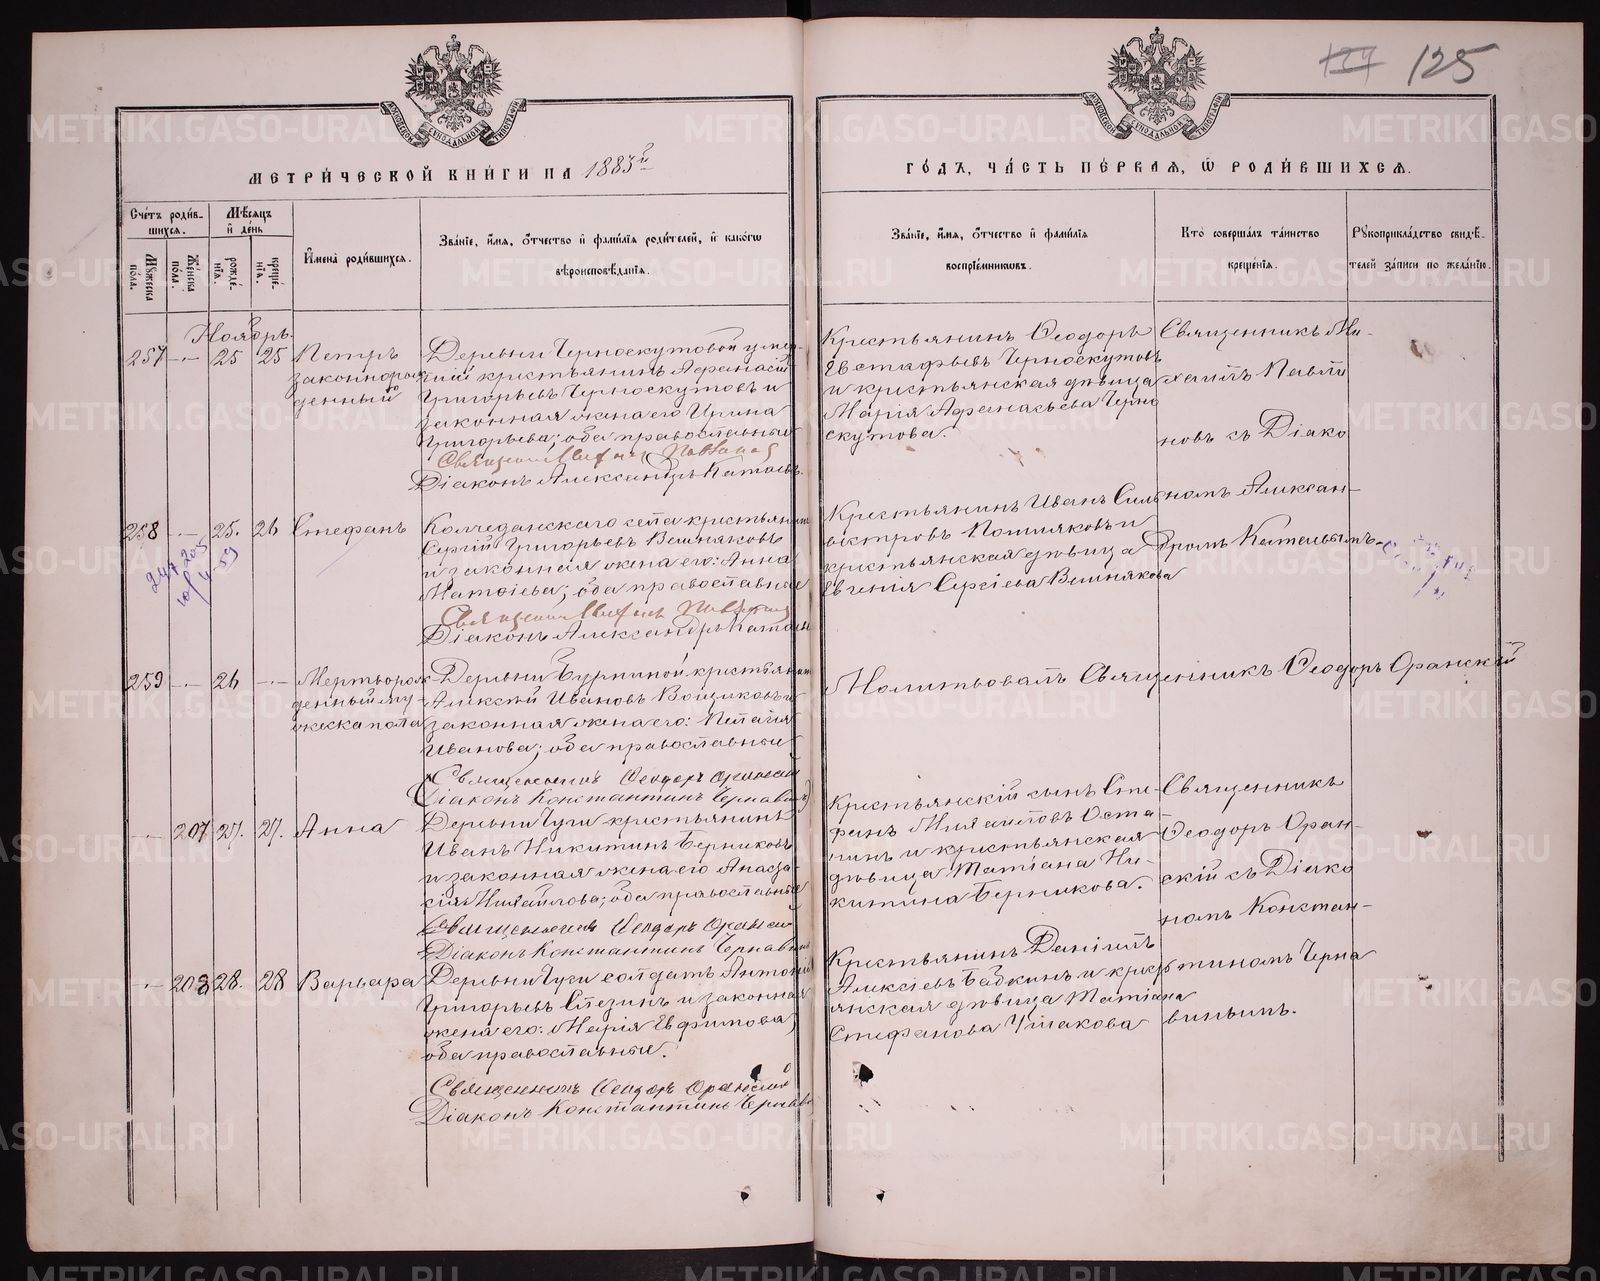 125
МЕТРИ́ЧЕСКОЙ КНИ́ГИ НА 1883й
ГО́ДЪ, ЧА́СТЬ ПЕ́РВАЯ, Ѡ РОДИ́ВШИХСѦ.
Сче́тъ роди́в-
шихсѧ.
Мꙋжеска по́ла.
Же́нска по́ла.
Мѣ́сѧцъ и де́нь
рожде́-нїѧ.
креще́-нїѧ.
И҆мена̀ роди́вшихсѧ.
Зва́нїе, и҆́мѧ, ѻ҆́тчество и҆ фами́лїѧ роди́телей, и҆ како́гѡ
вѣроисповѣ́данїѧ.
Зва́нїе, и҆́мѧ, ѻ҆́тчество и҆ фами́лїѧ
воспрїе́мникѡвъ.
Кто̀ соверша́лъ та́инство
креще́нїѧ.
Рꙋкоприкла́дство свидѣ́-
телей за́писи по жела́нїю.
Ноябрь.
257 - 25 25 Петръ
законнорож
денный
Деревни Черноскутовой умер-
шій крестьянинъ Афанасій
Григорьевъ Черноскутовъ и
законная жена его Ирина
Григорьева; оба православные
Діаконъ Александръ
Крестьянинъ Ѳеодоръ
Евстафьевъ Черноскутовъ
и крестьянская дѣвица
Марія Афанасьева Черно
скутова.
Священникъ Ми-
хаилъ
новъ съ Діако
номъ Алексан-
дромъ
258 - 25. 26 Стефанъ
Колчеданскаго села крестьянинъ
Сергій Григорьевъ Вешняковъ
и законная жена его: Анна
оба православные
Діаконъ Александръ
Крестьянинъ Иванъ Силь
вестровъ
крестьянская дѣвица
Евгенія Сергіева Вешнякова
259 - 26 - Мертворож
денный му
жеска пола
Деревни Бурниной крестьянинъ
Алексѣй Ивановъ
законная жена его: Пелагія
Иванова; оба православные
Священникъ Ѳеодоръ Оранскій
Діаконъ Константинъ Чернавинъ
Молитвовалъ Священникъ Ѳеодоръ Оранскій
- 207 27. 27. Анна
Деревни Чуги крестьянинъ
Иванъ Никитинъ Берниковъ
и законная жена его
Михайлова; оба православные
Священникъ Ѳеодоръ Оранскій
Діаконъ Константинъ Чернавинъ
Крестьянскій сынъ Сте-
фанъ Михаиловъ Оста-
нинъ и крестьянская
дѣвица Татіана Ни-
китина Берникова.
Священникъ
Ѳеодоръ Оран-
скій съ Діако
номъ Констан-
тиномъ Черна
винымъ.
- 208 28. 28 Варвара
Деревни Чуги солдатъ Антоній
Григорьевъ и законная
жена его: Марія Евфимова;
оба православные.
Священникъ Ѳеодоръ Оранскій
Діаконъ Константинъ Чернавинъ
Крестьянинъ Даніилъ
Алексѣевъ Бабкинъ и кресть
янская дѣвица Татіана
Стефанова Ушакова
METRIKI.GASO-URAL.RU